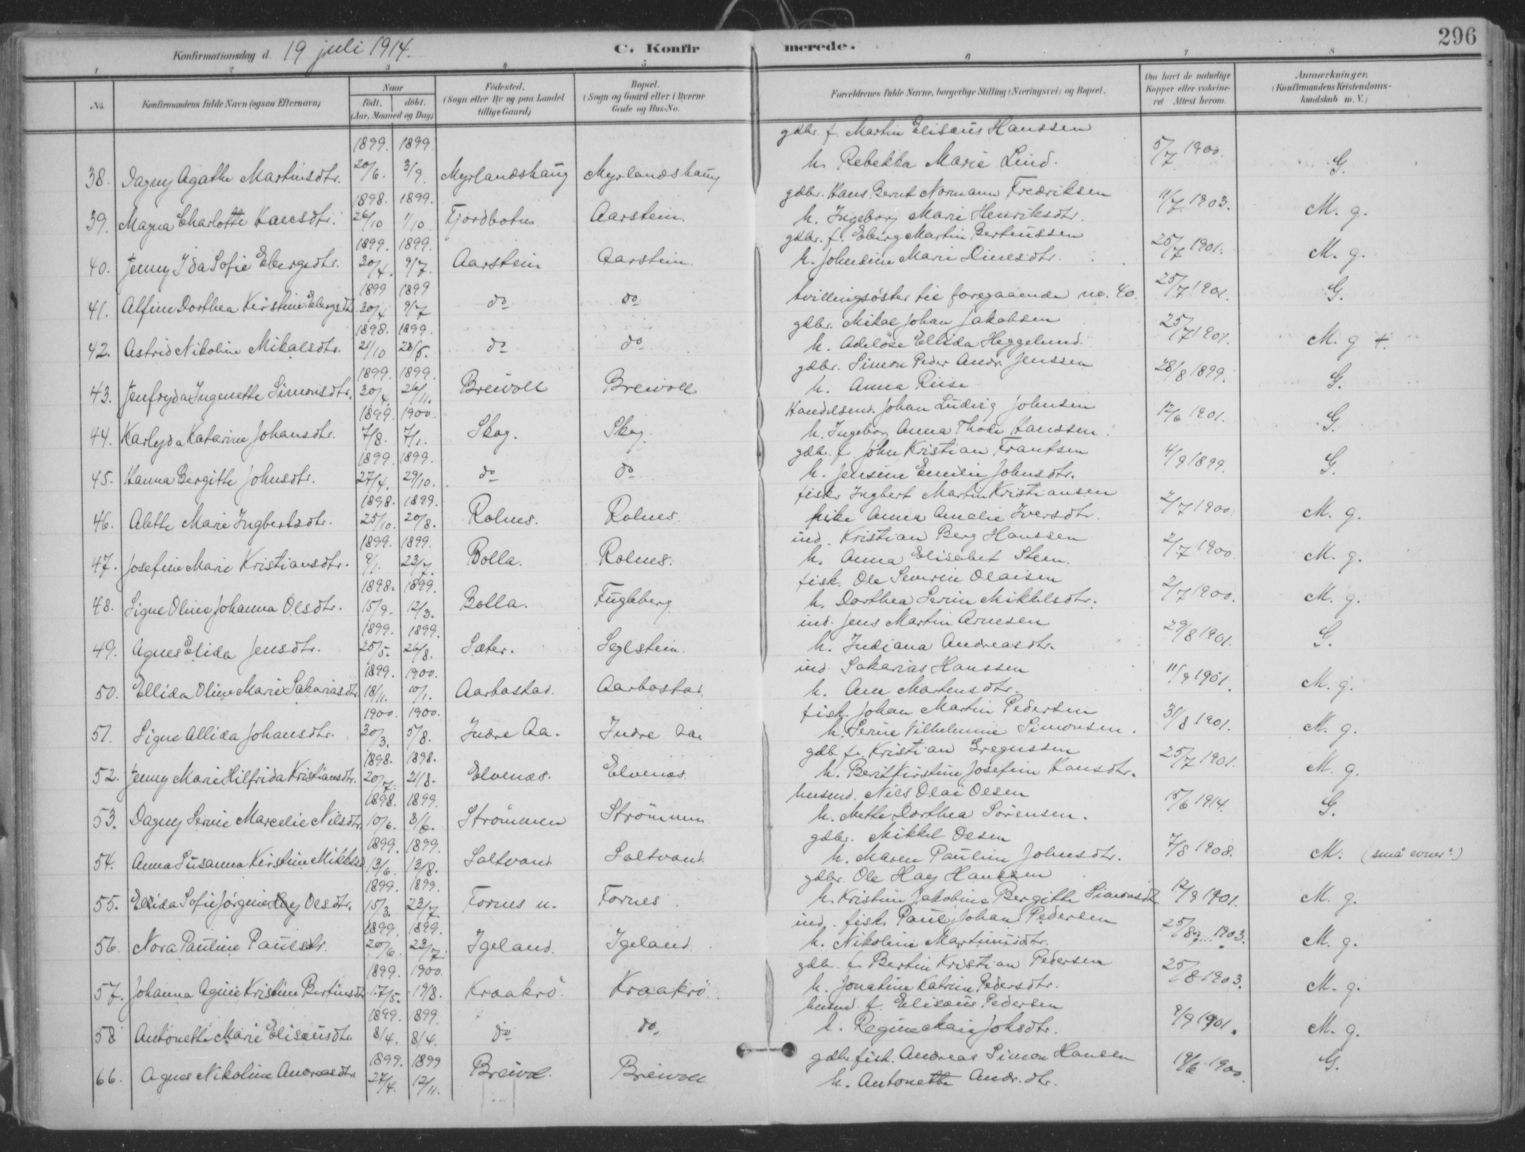 296
Konfirmationsdag d. 19 juli 1914.
C. Konfirmerede.
1 2 3 4 5 6 7 8
No.
Konfirmandens fulde Navn (ogsaa Efternavn)
Naar
født. døbt.
(Aar, Maaned og Dag)
Fødested.
(Sogn eller By og paa Landet
tillige Gaard)
Bopæl.
(Sogn og Gaard eller i Byerne
Gade og Hus-No.
Forældrenes fulde Navne, borgerlige Stilling (Næringsvei) og Bopæl.
Om havt de naturlige
Kopper eller vakcineret
Attest herom.
Anmærkninger.
(Konfirmandens Kristendomskundskab
m. V.)
gdbr. f. Martin Elisæus Hanssen
1899. 1899.
38. Dagny Agathe Martinsdtr. 20/6. 3/9. Myrlandshaug Myrlandshaug h. Rebekka Marie Lind. 5/7 1900. G.
1898. 1899. gdbr. Hans Bernt Normann Fredriksen
39. Magna Charlotte Hansdtr. 26/10 1/10 Fjordbotn Aarstein. h. Ingeborg Marie Henriksdtr. 11/7 1903. M. g.
1899. 1899. gdbr. f. Eberg Martin Berteussen
40. Jenny Ida Sofie Ebergsdtr. 20/4. 9/7. Aarstein Aarstein. h. Johnsine Marie Dinesdtr. 25/7 1901. M. g.
1899 1899
41. Alfine Dorthea Kirstine Ebergsdtr. 20/4 9/7 do do tvillingsøster til foregaaende no. 40. 25/7 1901. G.
1898. 1899. gdbr. Mikal Johan Jakobsen
42. Astrid Nikoline Mikalsdtr. 21/10 28/5. do do h. Adelose Ellida Heggelund. 25/7 1901. M. g +.
1899. 1899. gdbr. Simon Peder Andr. Jenssen
43. Jenfryda Ingenette Simonsdtr. 20/4. 26/11. Breivoll Breivoll h. Anna Riise 28/8 1899. G.
1899 1900. Handelsmd. Johan Ludvig Johnsen
44. Karlyda Katarina Johansdtr. 7/8. 7/1. Skog. Skog h. Ingeborg Anna Thode Hanssen. 12/6 1901. G.
1899 1899. gdbr. f. John Kristian Frantsen
45. Hanna Bergitte Johnsdtr. 27/4. 29/10. do do h. Jensine Emilie Johnsdtr. 4/9 1899. G.
1898. 1899. fisk. Ingbert Martin Kristiansen
46. Alette Marie Ingbertsdtr. 25/10. 20/8. Rolnes. Rolnes. pike Anna Amalie Iversdtr. 2/7 1900. M. g.
1899. 1899. ind. Kristian Berg Hanssen
47. Josefine Marie Kristiansdtr. 9/1. 23/7. Bolla. Rolnes. h. Anna Elisabet Sten. 2/7 1900. M. g.
1898. 1899. fisk. Ole Severin Olaisen
48. Signe Oline Johanna Olsdtr. 15/9. 12/3. Bolla. Fugleberg h. Dorthea Serine Mikkelsdtr. 2/7 1900. M. g.
1899. 1899. ind. Jens Martin Arnesen
49. Agnes Elida Jensdtr. 25/5. 26/8. Sæter. Seglstein. h. Indiana Andreasdtr. 29/8 1901. G.
1899. 1900. ind. Sakarias Hanssen
50. Ellida Oline Marie Sakariasdtr. 18/11. 10/1. Aarbostad. Aarbostad. h. Ane Martensdtr. 11/9 1901. M. g.
1900. 1900. fisk. Johan Martin Pedersen
51. Signe Allida Johansdtr. 20/3. 5/8. Indre Aa. Indre Aa h. Serine Vilhelmine Simonsen. 31/8 1901. M. g.
1898. 1898. gdb. f. Kristian Gregussen
52. Jenny Marie Hilfrida Kristiansdtr. 20/7. 21/8. Elvenæs. Elvenæs. h. Berit Kirstine Josefine Hansdtr. 25/7 1901. M. g.
1898. 1899. husmd. Niels Olai Olsen
53. Dagny Servie Marcelie Nilsdtr. 10/6. 8/6. Strømmen Strømmen h. Mette Dorthea Sørensen. 15/6 1914. G.
1899. 1899. gdbr. Mikkel Olsen
54. Anna Susanna Kirstine Mikkelsd. 13/6. 13/8. Saltvand Saltvand. h. Maren Pauline Johnsdtr. 7/8 1908. M. (små evner?)
1899. 1899. gdbr. Ole Hag Hanssen
55. Elida Sofie Jørgine Hag Olsdtr. 15/3. 23/7. Fornes u. Fornes h. Kristine Jakobine Bergitte Simonsdtr. 12/9 1901. M. g.
1899. 1899. ind. fisk. Paul Johan Pedersen
56. Nora Pauline Paulsdtr. 20/6. 23/7. Igeland Igeland h. Nikoline Martinusdtr. 25/8 1903. M. g.
1899. 1900. gdb. f. Bertin Kristian Pedersen
57. Johanna Agnie Kristine Bertinsdtr. 17/5. 19/8. Kraakrø. Kraakrø. h. Jonatine Katrine Pedersdtr. 25/8 1903. M. g.
1899. 1899. husmd. f. Elisæus Pedersen
58 Antonette Marie Elisæusdtr. 8/4. 8/4. do do. h. Regine Marie Johsdtr. 9/9 1901. M. g.
1899. 1899 gdbr. fisk. Andreas Simon Hansen
66. Agnes Nikoline Andreasdtr. 27/4. 12/11. Breivoll. Breivoll h. Antonette Andr.dtr. 19/6 1900. G.